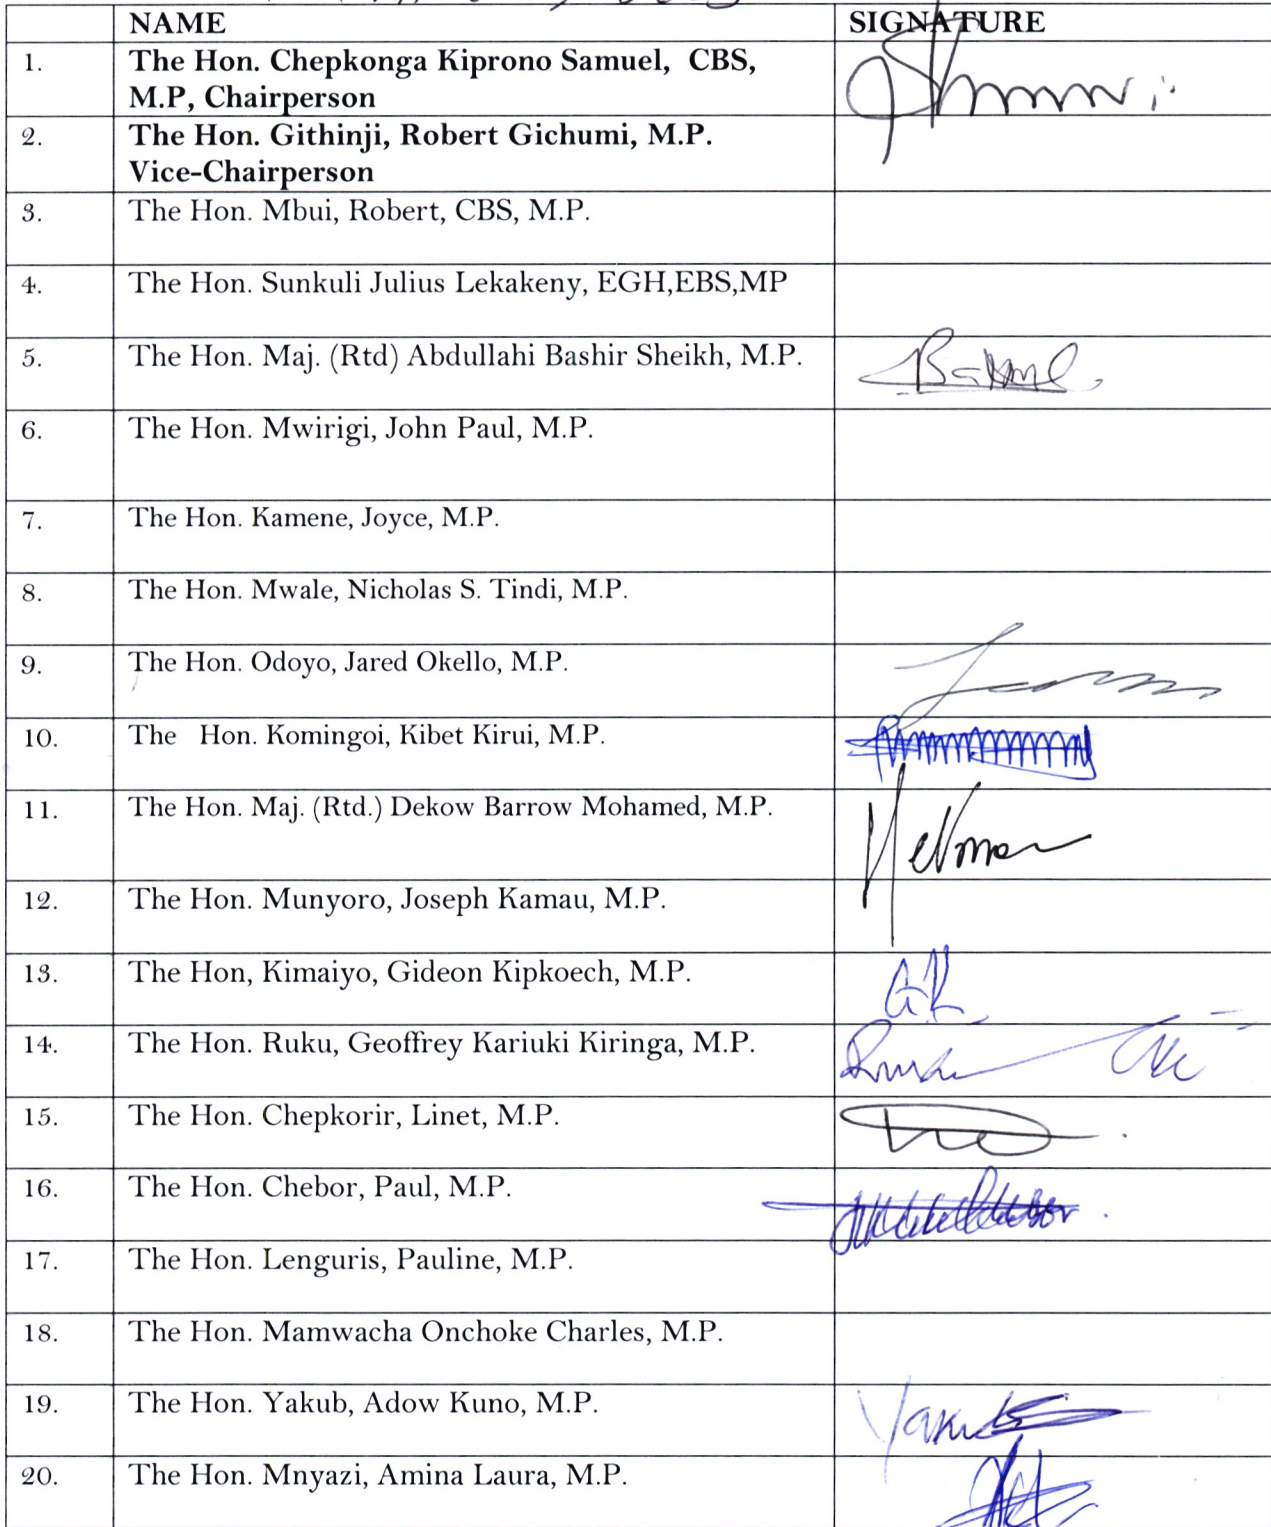 NAME SIGNATURE
1. The Hon. Chepkonga Kiprono Samuel, CBS,
M.P, Chairperson
2. The Hon. Githinji, Robert Gichumi, M.P.
Vice-Chairperson
3. The Hon. Mbui, Robert, CBS, M.P.
4. The Hon. Sunkuli Julius Lekakeny, EGH,EBS,MP
5. The Hon. Maj. (Rtd) Abdullahi Bashir Sheikh, M.P.
6. The Hon. Mwirigi, John Paul, M.P.
7. The Hon. Kamene, Joyce, M.P.
8. The Hon. Mwale, Nicholas S. Tindi, M.P.
9. The Hon. Odoyo, Jared Okello, M.P.
10. The Hon. Komingoi, Kibet Kirui, M.P.
11. The Hon. Maj. (Rtd.) Dekow Barrow Mohamed, M.P.
12. The Hon. Munyoro, Joseph Kamau, M.P.
13. The Hon, Kimaiyo, Gideon Kipkoech, M.P.
14. The Hon. Ruku, Geoffrey Kariuki Kiringa, M.P.
15. The Hon. Chepkorir, Linet, M.P.
16. The Hon. Chebor, Paul, M.P.
17. The Hon. Lenguris, Pauline, M.P.
18. The Hon. Mamwacha Onchoke Charles, M.P.
19. The Hon. Yakub, Adow Kuno, M.P.
20. The Hon. Mnyazi, Amina Laura, M.P.